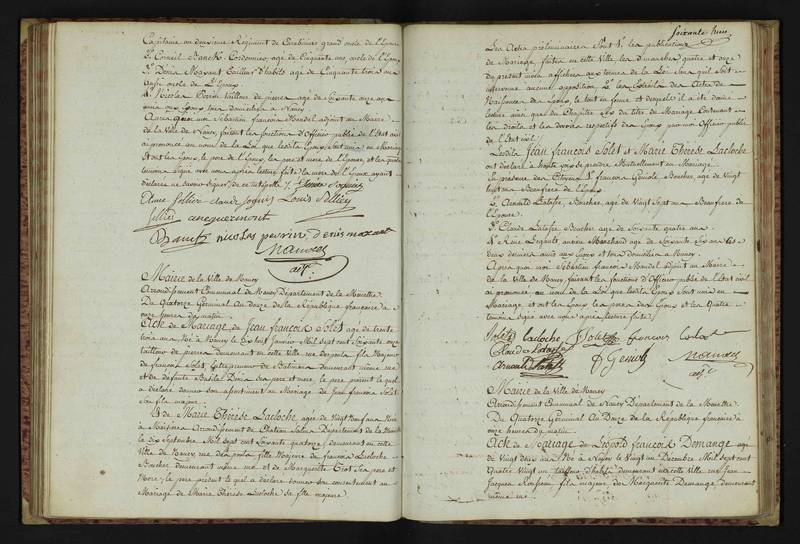 Capitaine au deuxieme Régiment de Carabiniers grand oncle de l'Epouse
Cordonnier, agé de Cinquante ans, oncle de l'Epoux
3°. Denis Maxant tailleur d'habits agé de Cinquante trois ans
aussi oncle de l'Epoux
4°. Nicolas Perrin tailleur de pierres agé de Soixante onze ans
amis aux Epoux tous domiciliés à Nancy
Après quoi moi Sébastien françois Mandel adjoint au Maire
de la Ville de Nancy, faisant les fonctions d'Officier public de l'Etat civil
ai prononcé au nom de la Loi que lesdits Epoux sont unis en Mariage
Et ont les Epoux, le pere de l'Epoux, les pere et mere de l'Epouse, et les quatre
temoins signé avec nous après lecture faite la mere de l'Epoux ayant
déclaré ne savoir signer de ce interpellé
Louis
nicolas perrin denis maxant
Mandel
adjt.
Mairie de la Ville de Nancy
Arrondissement Communal de Nancy Département de la Meurthe
Du Quatorze Germinal an douze de la République française à
onze heures du matin
Acte de Mariage de Jean françois Solet agé de trente
trois ans Né à Nancy le dix huit Janvier Mil sept cent soixante onze
tailleur de pierres demeurant en cette Ville rue fils Majeur
de françois Solet Entrepreneur de Batimens demeurant même rue
et de défunte ses pere et mere, le pere présent lequel
a déclaré donner son consentement au Mariage de Jean françois Solet
son fils majeur
Et de Marie Thérèse Lacloche agée de Vingt neuf ans Née
à Arrondissement de Chateau Salins Département de la Meurthe
le dix Septembre Mil sept cent Soixante quatorze, demeurant en cette
Ville de Nancy fille Majeure de françois Lacloche
Boucher demeurant même rue et de Marguerite ses pere et
Mere, le pere présent lequel a déclaré donner son consentement au
Mariage de Marie Thérèse Lacloche sa fille majeure
Soixante huit
Les Actes préliminaires sont 1°. les publications
de Mariage faites en cette Ville les dimanches quatre et onze
du présent mois affichées aux termes de la Loi sans qu'il soit
intervenu aucune opposition 2°. les Extraits des Actes de
Naissances des Epoux, le tout en forme et desquels il a été donné
lecture ainsi que du Chapitre Six du titre du Mariage Contenant
les droits et les devoirs respectifs des Epoux par moi Officier public
de l'Etat civil
Lesdits Jean françois Solet et Marie Thérèse Lacloche
ont déclaré à haute voix se prendre Mutuellement en Mariage
En présence des Citoyens 1°. françois Boucher, agé de Vingt
Beaufrere de l'Epoux
2°. Boucher, agé de Vingt Sept ans Beaufrere de
l'Epouse
3°. Claude Boucher agé de Soixante quatre ans
4°. René ancien Marchand agé de Soixante Six ans les
deux derniers amis aux Epoux et tous domiciliés à Nancy
Après quoi moi Sébastien françois Mandel adjoint au Maire
de la Ville de Nancy faisant les fonctions d'Officier public de l'Etat civil
ai prononcé au nom de la Loi que lesdits Epoux sont unis en
Mariage et ont les Epoux les peres des Epoux et les Quatre
temoins signé avec nous après lecture faite
Solet Lacloche Solet
Mandel
adjt.
Mairie de la Ville de Nancy
Arrondissement Communal de Nancy Département de la Meurthe
Du Quatorze Germinal An Douze de la République française à
onze heures du matin
Acte de Mariage de Léopold françois Demange agé
de Vingt deux ans Né à Nancy le Vingt un Décembre Mil sept cent
Quatre Vingt un tailleur d'habits demeurant en cette Ville rue Jean
Jacques Rousseau fils majeur de Marguerite Demange demeurant
même rue